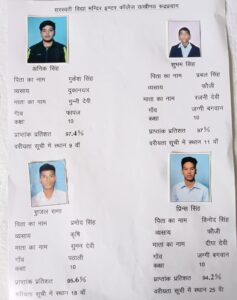 सरस्वती विद्या मन्दिर इण्टर कॉलेज ऊखीमठ रुद्रप्रयाग
अनिक सिंह
पिता का नाम मुकेश सिंह
व्यवसाय दुकानदार
माता का नाम मुन्नी देवी
गाँव फापंज
कक्षा 10
प्राप्तांक प्रतिशत 97.4%
वरीयता सूची में स्थान 9 वाँ
शुभम सिंह
पिता का नाम प्रबल सिंह
व्यसाय फौजी
माता का नाम रजनी देवी
गाँव जग्गी बगवान
कक्षा 10
प्राप्तांक प्रतिशत 97%
वरीयता सूची में स्थान 11 वाँ
राणा
पिता का नाम प्रमोद सिंह
व्यसाय कृषि
माता का नाम सुमन देवी
गाँव
कक्षा 10
प्राप्तांक प्रतिशत 95.6%
वरीयता सूची में स्थान 18 वाँ
प्रिन्स सिंह
पिता का नाम विनोद सिंह
व्यसाय फौजी
माता का नाम दीपा देवी
गाँव जग्गी बगवान
कक्षा 10
प्राप्तांक प्रतिशत 94.2%
वरीयता सूची में स्थान 25 वाँ